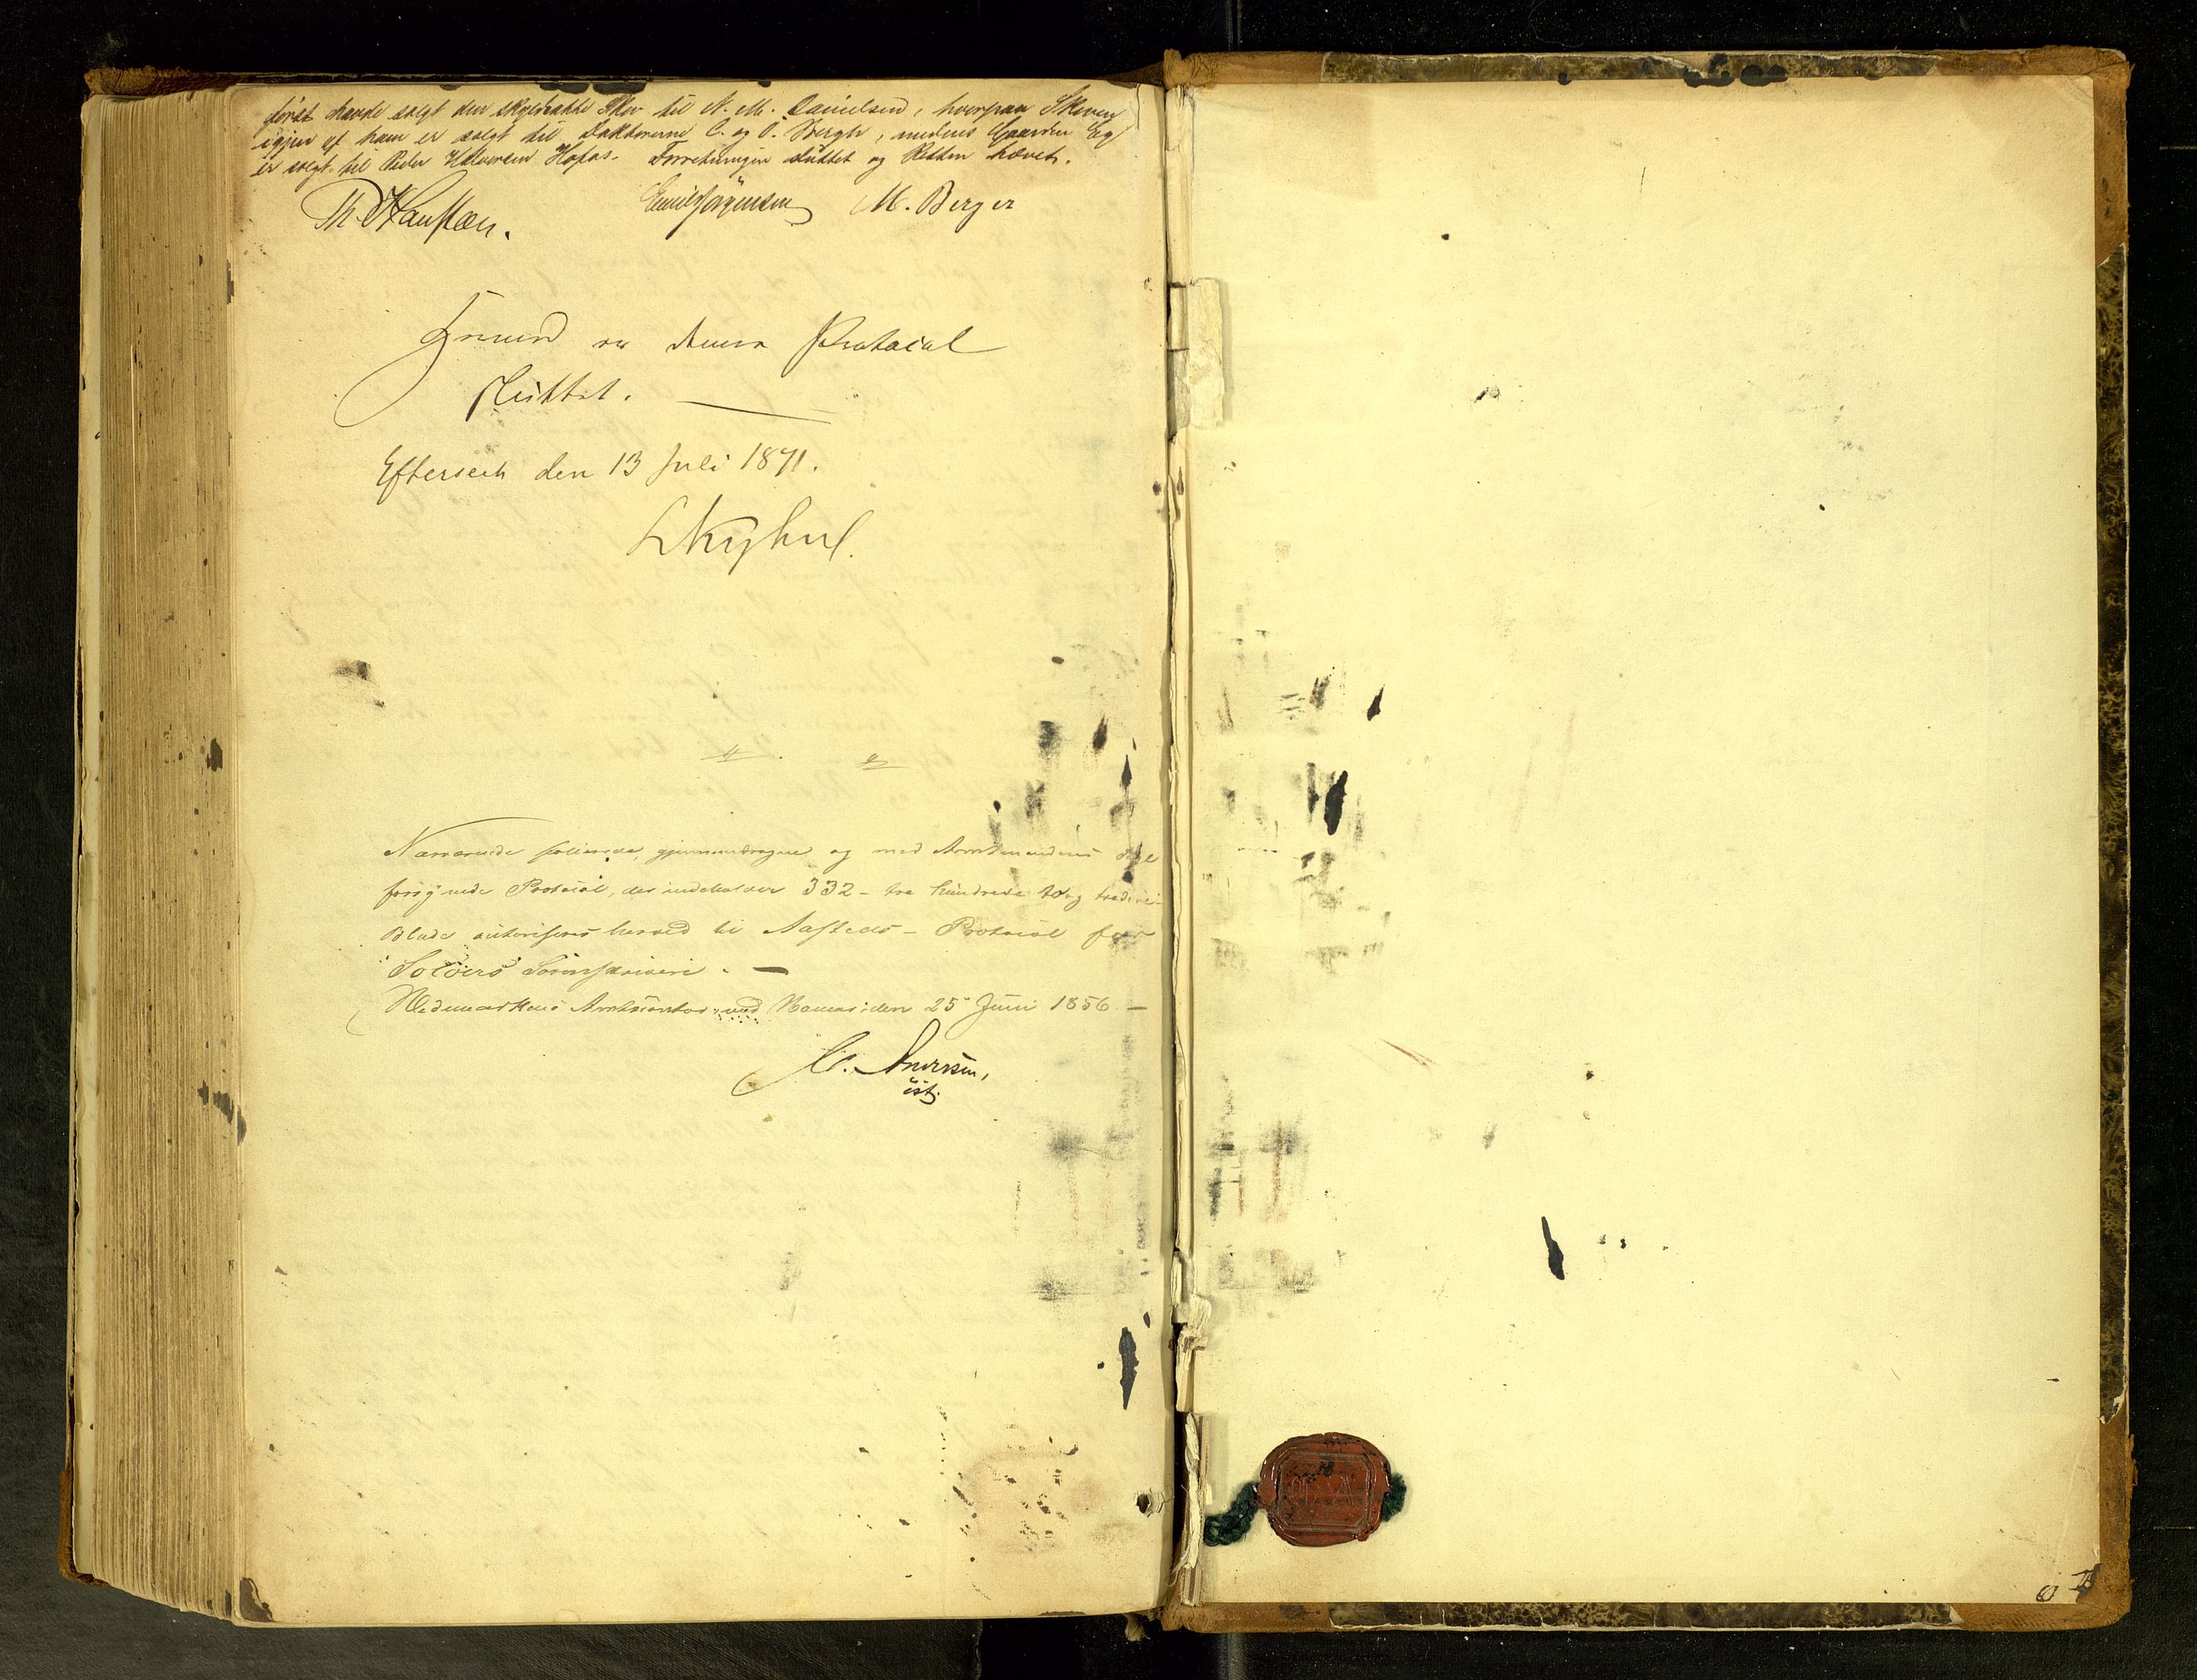 først havde solgt den skyldsatte Skov til N. M. Danielsen, hvorpaa Skoven
igjen af ham er solgt til Doktorerne C. og O. Bergh, medens Gaarden Eg
er solgt til Peder Halvorsen Hofos. Forretningen sluttet og Retten hævet.
Emil Jörgensen M. Berger
er denne Protocol
sluttet.
Efterseet den 13 Juli 1871.
Nærværende folierede, gjennemdragne og med Amtmandens
forsynede Protocol, der indeholder 332 - tre hundrede to og tredive -
Blade autoriseres herved til Aasteds-Protocol for
Solöers Sorenskriveri. -
Hedemarkens Amtscontor ved Hamar den 25 Juni 1856. -
Andersen,
cst.